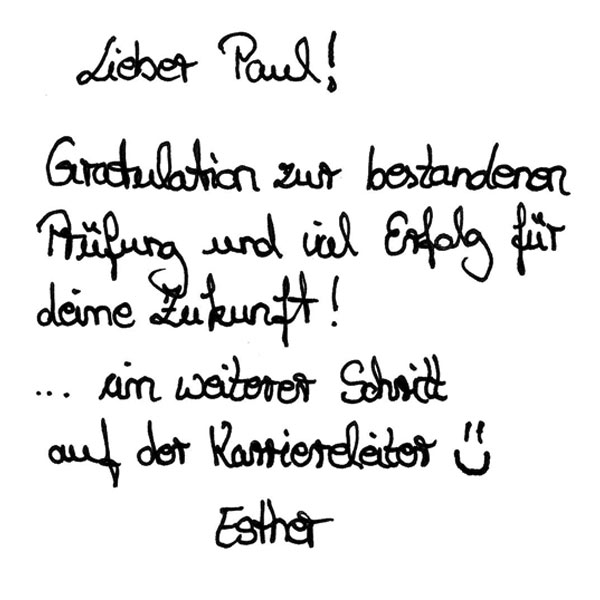 Lieber Paul!
Gratulation zur bestandenen
Prüfung und viel Erfolg für
deine Zukunft!
... ein weiterer Schritt
auf der Karriereleiter ü
Esther